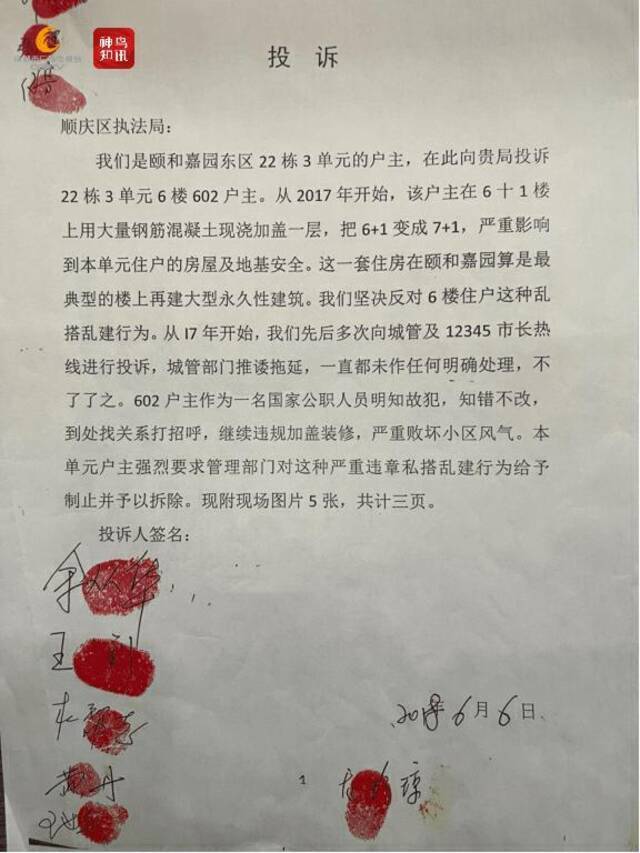 神鸟
知讯
投 诉
顺庆区执法局：
我们是颐和嘉园东区 22 栋 3 单元的户主，在此向贵局投诉
22 栋 3 单元 6 楼 602 户主。从 2017 年开始，该户主在 6 十 1 楼
上用大量钢筋混凝土现浇加盖一层，把 6+1 变成 7+1，严重影响
到本单元住户的房屋及地基安全。这一套住房在颐和嘉园算是最
典型的楼上再建大型永久性建筑。我们坚决反对 6 楼住户这种乱
搭乱建行为。从 I7 年开始，我们先后多次向城管及 12345 市长热
线进行投诉，城管部门推诿拖延，一直都未作任何明确处理，不
了了之。602 户主作为一名国家公职人员明知故犯，知错不改，
到处找关系打招呼，继续违规加盖装修，严重败坏小区风气。本
单元户主强烈要求管理部门对这种严重违章私搭乱建行为给予
制止并予以拆除。现附现场图片 5 张，共计三页。
投诉人签名：
王 钊
6 月 6 日
黄 丹
1